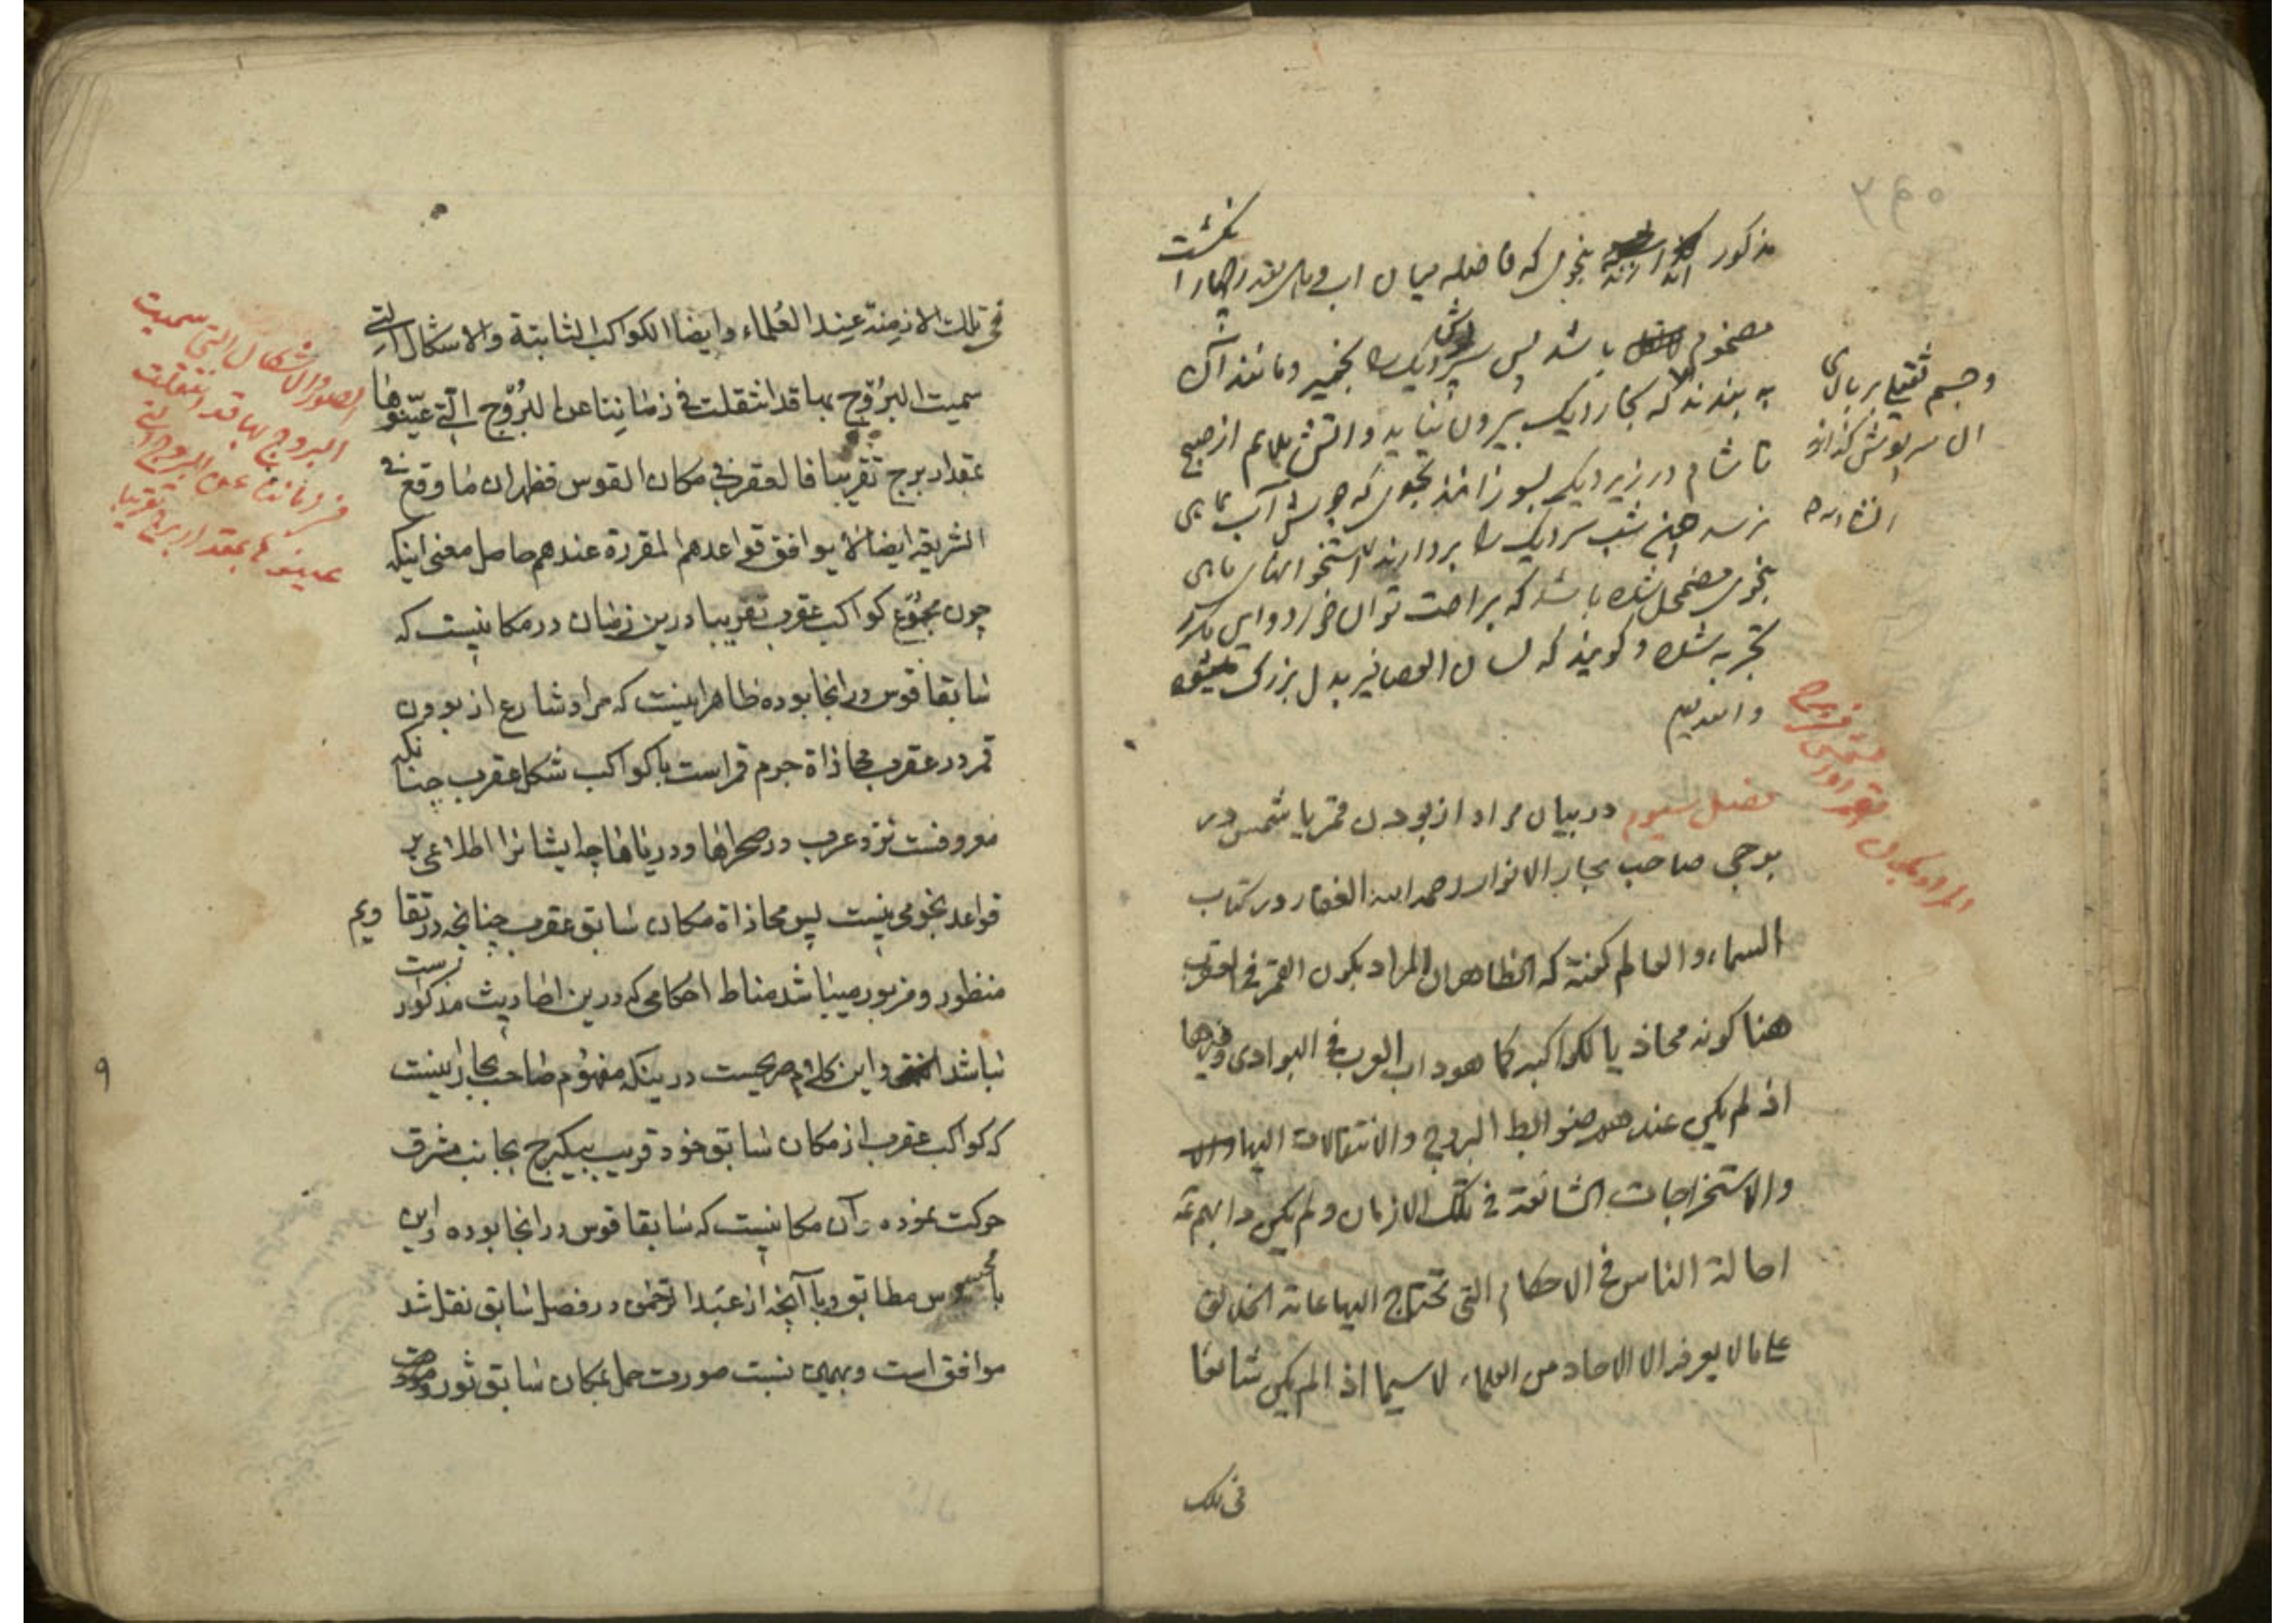 مذکور بنحوی که فاصله میان اب و بقدر چهار انکشت
مضموم باشد پس سرپوش دیک را بخمیر و مانند آن
به بندند که بخار دیک بیرون نیاید و اتش ملایم از صبح
تا شام در زیر دیک بسوزانند بنحوی که جوش آب بماهی
نرسد شب سر دیک را بردارند استخوانهای ماهی
بنحوی مضمحل شده باشد که براحت توان خورد و این مکرر
تجربه شده و کویند که لسان العصافیر بدل بزرک
و الله یعلم
وجسم ثقیلی بر بالای
ان سرپوش کذارند
فصل سیوم در بیان مراد از بودن قمر یا شمس در
برجی صاحب بحار الانوار رحمه الله الغفار در کتاب
السماء و العالم کفته که الظاهر ان المراد بکون القمر فی العقرب
هنا کونه محاذیا لکواکبه کما هو داب العرب فی البوادی وغیرها
اذ لم یکن عندهم ضوابط البروج والانتقالات الیها
والاستخراجات الشائعة فی تلک الازمان ولم یکن دابهم ع
احالة الناس فی الاحکام التی تحتاج الیها عامة الخلائق
علی ما لا یعرفه الا الاحاد من العلماء لا سیما اذا لم یکن شائعا
فی تلک
فی تلک الازمنة عند العلماء وایضا الکواکب الثابتة والاشکال التی
سمیت البروج بها قد انتقلت فی زماننا عن البروج التی عینوها
بمقدار برج تقریبا فالعقرب فی مکان القوس فظهر ان ما وقع فی
الشریعة ایضا لا یوافق قواعدهم المقررة عندهم حاصل معنی اینکه
چون مجموع کواکب عقرب تقریبا درین زمان در مکانیست که
سابقا قوس در انجا بوده ظاهر اینست که مراد شارع از بودن
قمر در عقرب محاذاة جرم قمر است با کواکب شکل عقرب چنانکه
معروفست نزد عرب در صحراها و دریاها چه ایشانرا اطلاعی بر
قواعد نجومی نیست پس محاذاة مکان سابق عقرب چنانچه در تقاویم
منظور و مزبور میباشد مناط احکامی که درین احادیث مذکورست
نباشد انتهی و این کلام صریحست درینکه مفهوم صاحب بحار اینست
که کواکب عقرب از مکان سابق خود قریب بیکبرج بجانب مشرق
حرکت نموده و آن مکانیست که سابقا قوس در انجا بوده و این
با محسوس مطابق و با آنچه از عبد الرحمن در فصل سابق نقل شد
موافق است و بهمین نسبت صورت حمل بمکان سابق ثور و
الصور والاشکال التی سمیت
البروج بها قد انتقلت
فی زماننا عن البروج التی
عینوها بمقدار برج تقریبا
۹